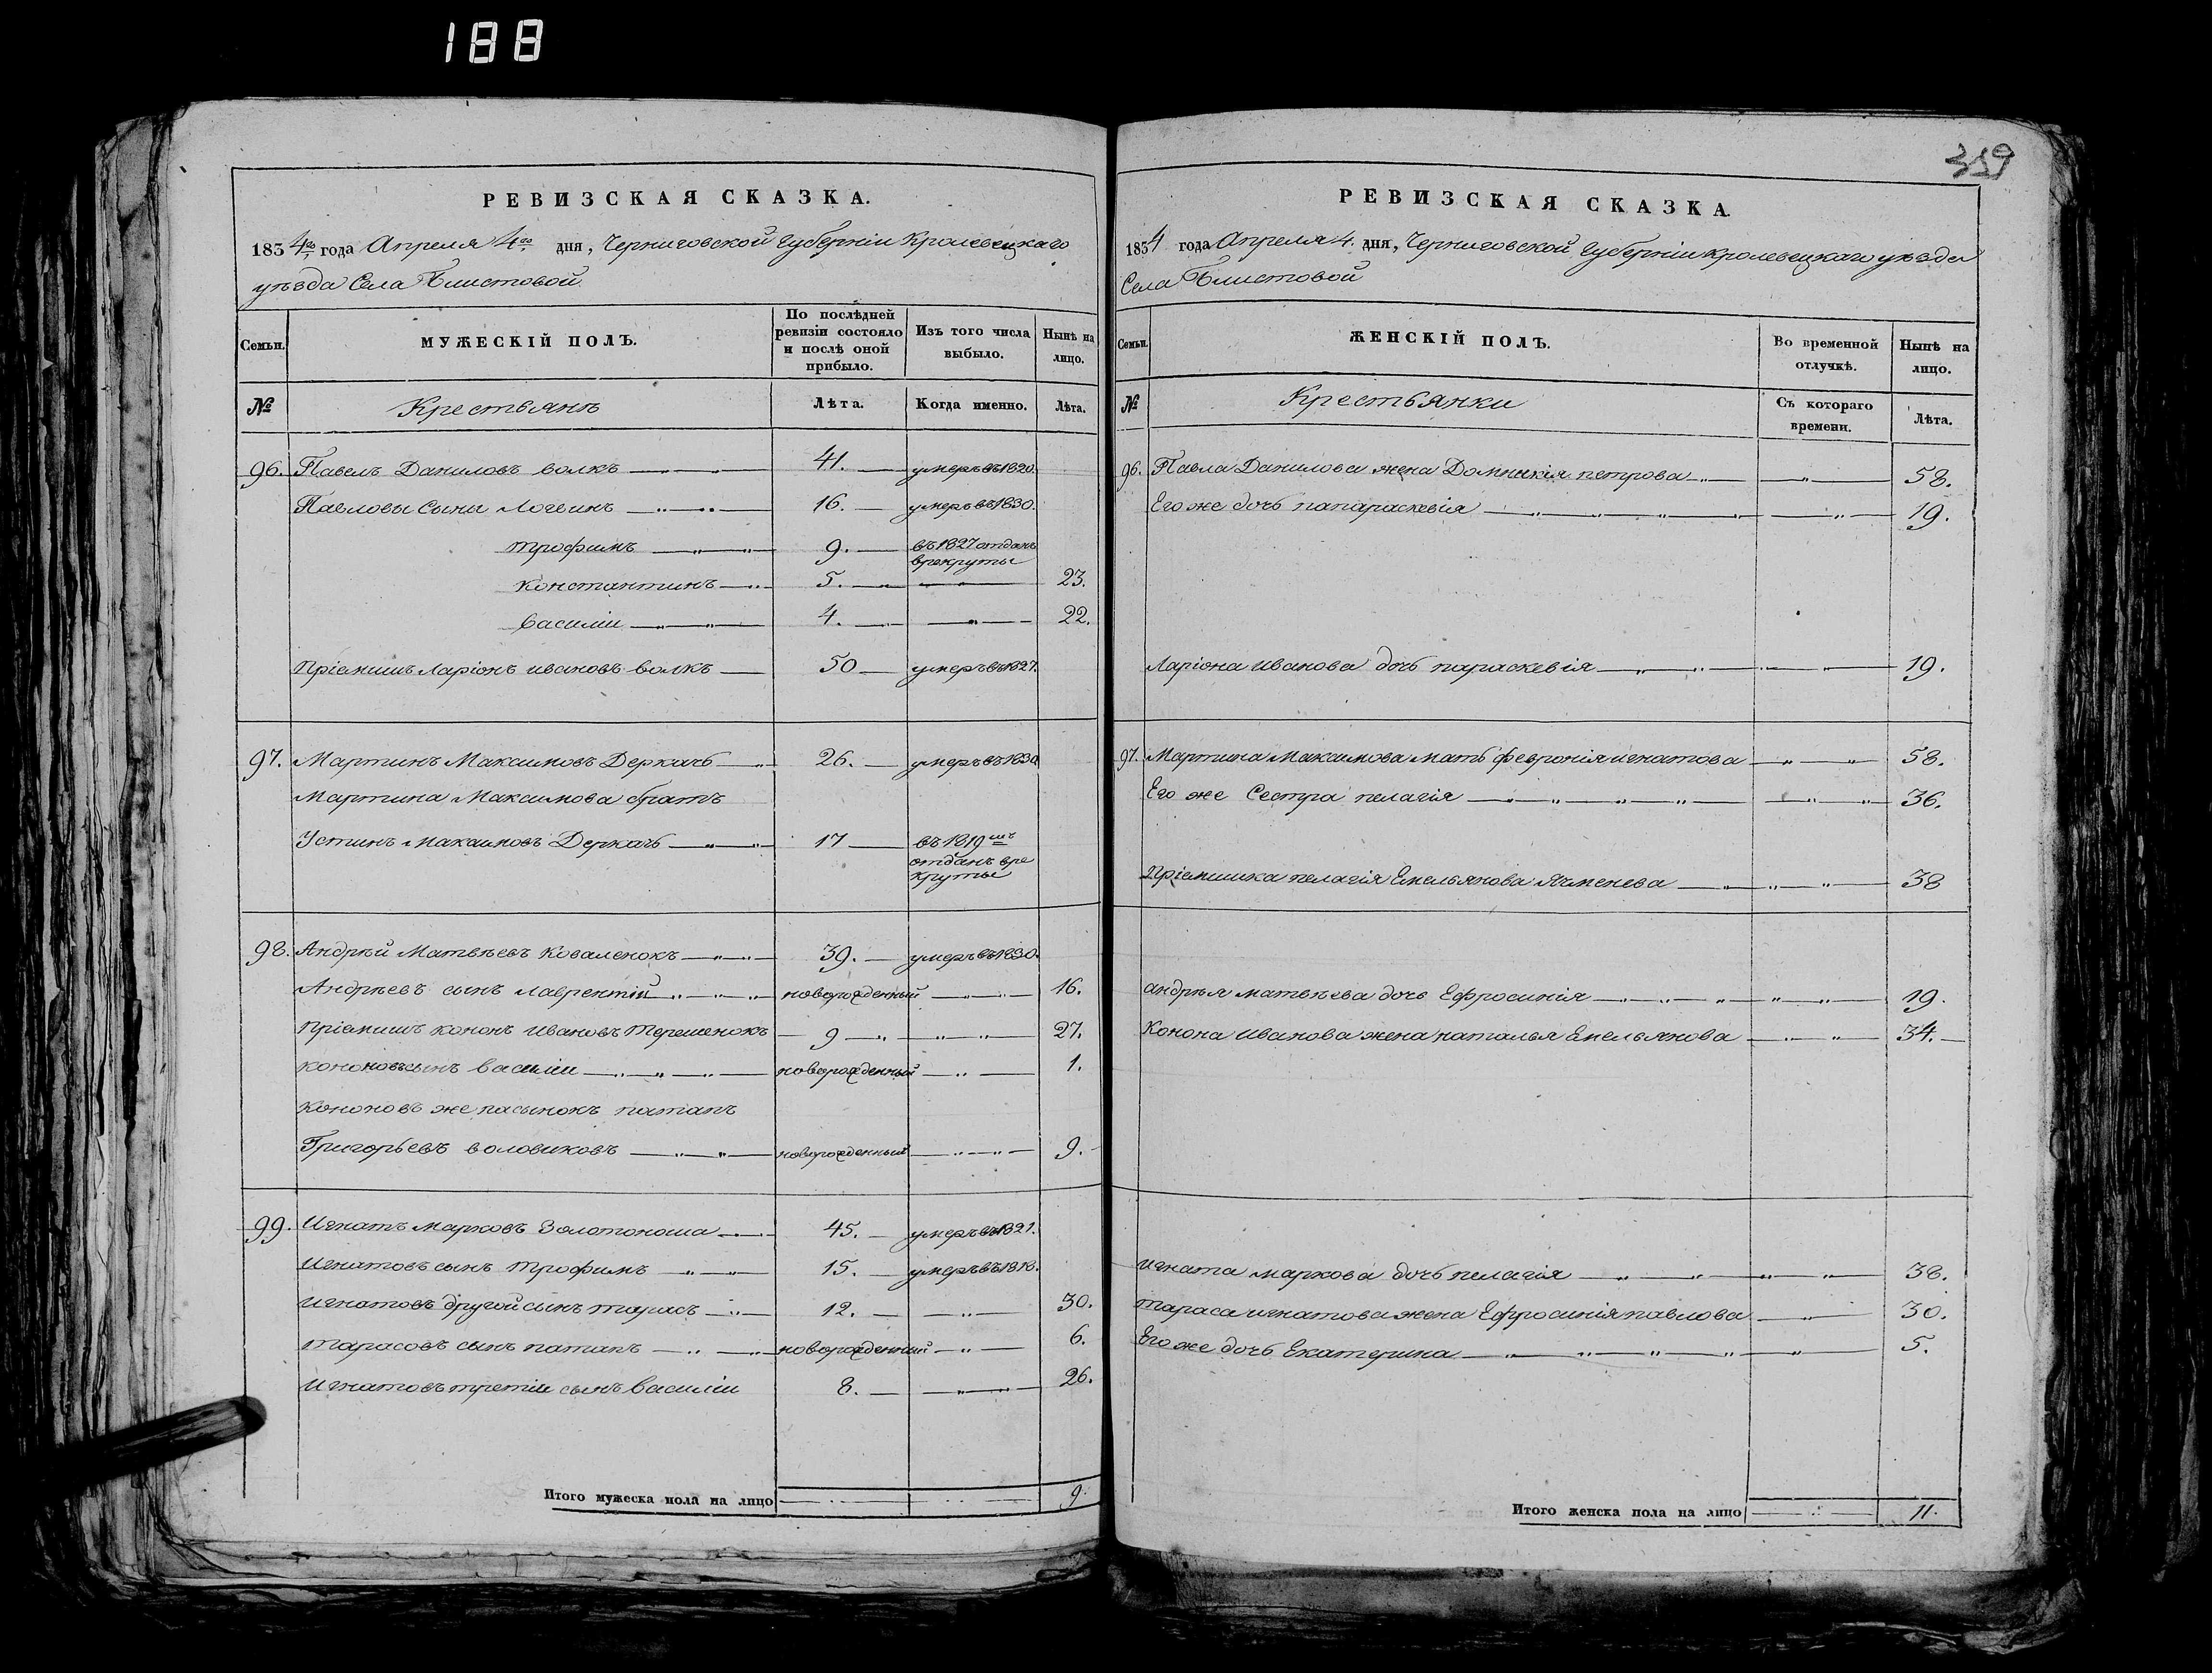 188
359
РЕВИЗСКАЯ СКАЗКА.
1834го года Апреля 4го дня, Черниговской Губерніи Кролевецкаго
уѣзда Села Блистовой
Семьи.
МУЖЕСКІЙ ПОЛЪ.
По послѣдней ревизіи состояло и послѣ оной прибыло.
Изъ того числа выбыло.
Нынѣ на лицо.
№
Крестьянъ
Лѣта.
Когда именно.
Лѣта.
96. Павелъ Даниловъ волкъ 41. умеръ въ 1820.
Павловы Сыны Логвинъ 16. умеръ въ 1830.
трофимъ 9. въ 1827 отданъ
врекруты
константинъ 5. 23.
василіи 4. 22.
пріемишъ ларіонъ ивановъ волкъ 50 умеръ въ 1827.
97. Мартинъ Максимовъ Деркачъ 26. умеръ въ
Мартина Максимова братъ
Устинъ Максимовъ Деркачъ 17 въ 1819мъ
отданъ вре
круты
98. Андрѣй Матвѣевъ коваленокъ 39. умеръ въ 1830.
Андрѣевъ сынъ лаврентій новорожденный 16.
пріемишъ кононъ ивановъ терешенокъ 9 27.
кононовъ сынъ василіи новорожденный 1.
кононовъ же пасынокъ потапъ
Григорьевъ воловиковъ новорожденный 9.
99. Игнатъ марковъ Золотоноша 45. умеръ въ 1821.
игнатовъ сынъ трофимъ 15. умеръ въ 1818.
игнатовъ другой сынъ тарасъ 12. 30.
тарасовъ сынъ потапъ новорожденный 6.
игнатовъ третіи сынъ василіи 8. 26.
Итого мужеска пола на лицо 9.
РЕВИЗСКАЯ СКАЗКА.
1834 года Апреля 4. дня, Черниговской Губерніи кролевецкаго уѣзда
Села Блистовой
Семьи.
ЖЕНСКІЙ ПОЛЪ.
Во временной отлучкѣ.
Нынѣ на лицо.
№
Крестьянки
Съ котораго времени.
Лѣта.
96. Павла Данилова жена Домникія петрова 58.
Его же дочь папараскевія 19.
ларіона иванова дочь параскевія 19.
97. Мартина Максимова мать февронія игнатова 58.
Его же Сестра пелагія 36.
Пріемишка пелагія Емельянова Ячменева 38
андрѣя матвѣева дочь Ефросинія 19.
Конона иванова жена наталья Емельянова 34.
игната маркова дочь пелагія 38.
тараса игнатова жена Ефросинія павлова 30.
Его же дочь Екатерина 5.
Итого женска пола на лицо 11.